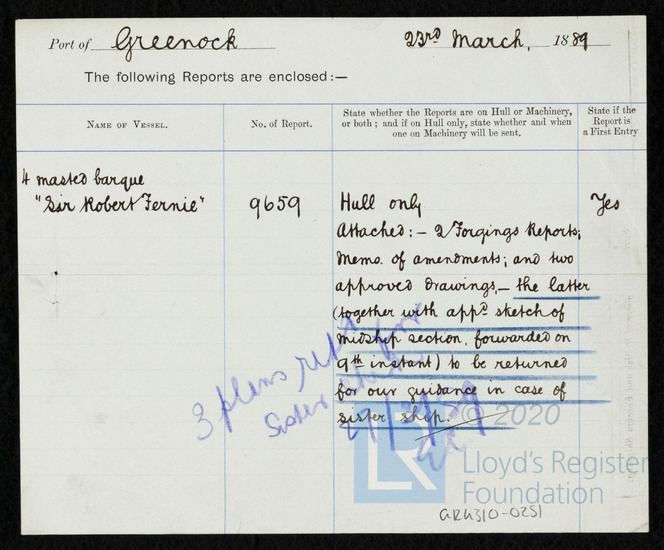 Port of Greenock 23rd March, 1889
The following Reports are enclosed:—
NAME OF VESSEL.
No. of Report.
State whether the Reports are on Hull or Machinery,
or both; and if on Hull only, state whether and when
one on Machinery will be sent.
State if the
Report is
a First Entry
4 masted barque
"Sir Robert Fernie"
9659
Hull only
Yes
Attached:— 2 Forgings Reports;
Memo. of amendments; and two
approved drawings,— the latter
(together with appd. sketch of
midship section, forwarded on
9th instant) to be returned
for our guidance in case of
sister ship.
3 plans
Sister
27/3/89
© 2020
LR
Lloyd's Register
Foundation
GRK310-0251